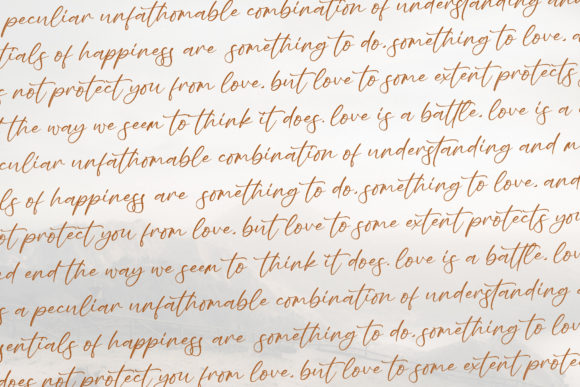 peculiar unfathomable combination of understanding and
tials of happiness are something to do. something to love.
not protect you from love. but love to some extent protects
the way we seem to think it does. love is a battle. love is a
culiar unfathomable combination of understanding and m
als of happiness are something to do. something to love. and
not protect you from love. but love to some extent protects you
d end the way we seem to think it does. love is a battle. lov
s a peculiar unfathomable combination of understanding
sentials of happiness are something to do. something to lov
does not protect you from love. but love to some extent protec